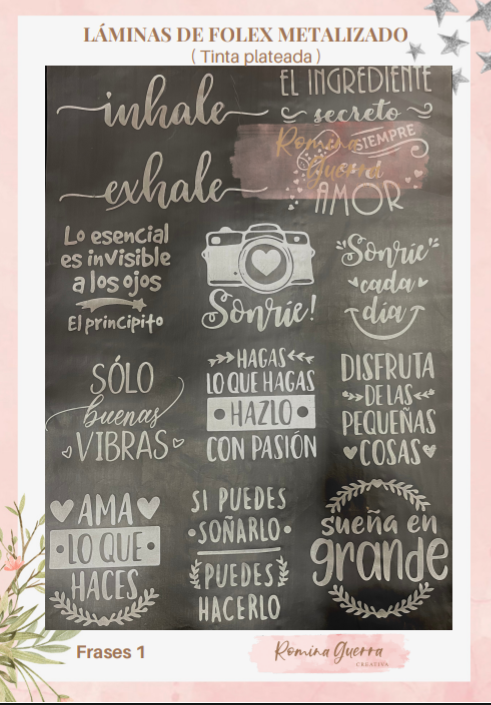 LÁMINAS DE FOLEX METALIZADO
( Tinta plateada )
inhale
exhale
EL INGREDIENTE
secreto
ES SIEMPRE
AMOR
Romina
Guerra
Lo esencial
es invisible
a los ojos
El principito
Sonríe!
"Sonríe"
cada
día
SÓLO
buenas
VIBRAS
HAGAS
LO QUE HAGAS
HAZLO
CON PASIÓN
DISFRUTA
DE LAS
PEQUEÑAS
COSAS
AMA
LO QUE
HACES
SI PUEDES
SOÑARLO
PUEDES
HACERLO
sueña en
grande
Frases 1
Romina Guerra
CREATIVA